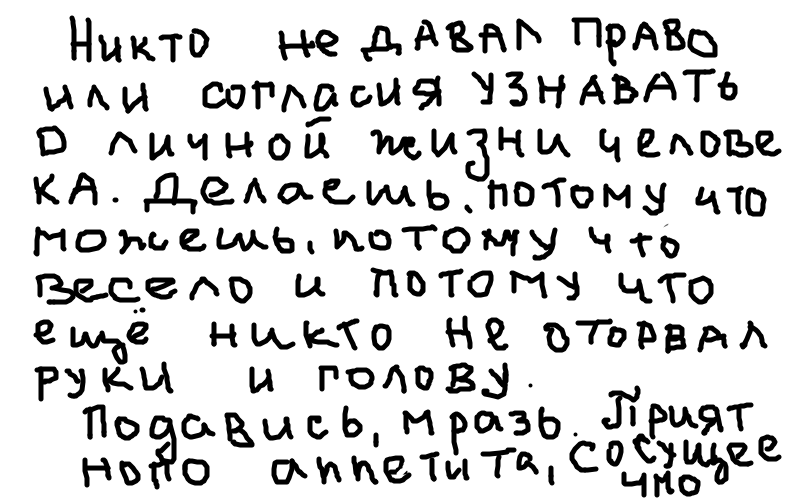 Никто не давал право
или согласия узнавать
о личной жизни челове
ка. Делаешь, потому что
можешь, потому что
весело и потому что
ещё никто не оторвал
руки и голову.
Подавись, мразь. Прият
ного аппетита, сосущее
чмо